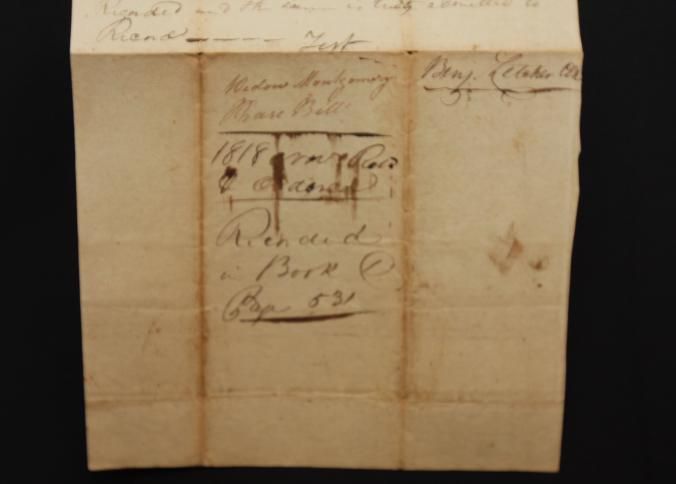 Recorded and the same is truly admitted to
Record ———— Test
Benj. Letcher Clk
Widow Montgomery
Phase Bill
1818
&
Recorded
in Book
Page 531